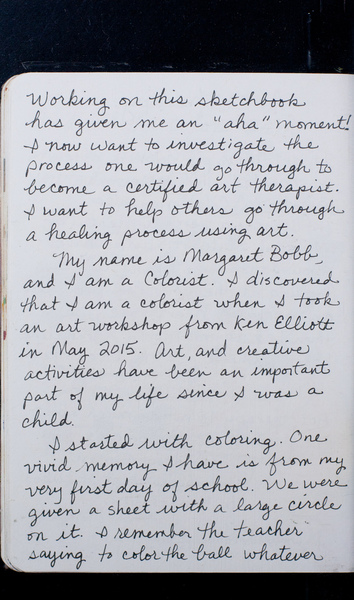 Working on this sketchbook
has given me an "aha" moment!
I now want to investigate the
process one would go through to
become a certified art therapist.
I want to help others go through
a healing process using art.
My name is Margaret Bobb,
and I am a Colorist. I discovered
that I am a colorist when I took
an art workshop from Ken Elliott
in May 2015. Art, and creative
activities have been an important
part of my life since I was a
child.
I started with coloring. One
vivid memory I have is from my
very first day of school. We were
given a sheet with a large circle
on it. I remember the teacher
saying to color the ball whatever